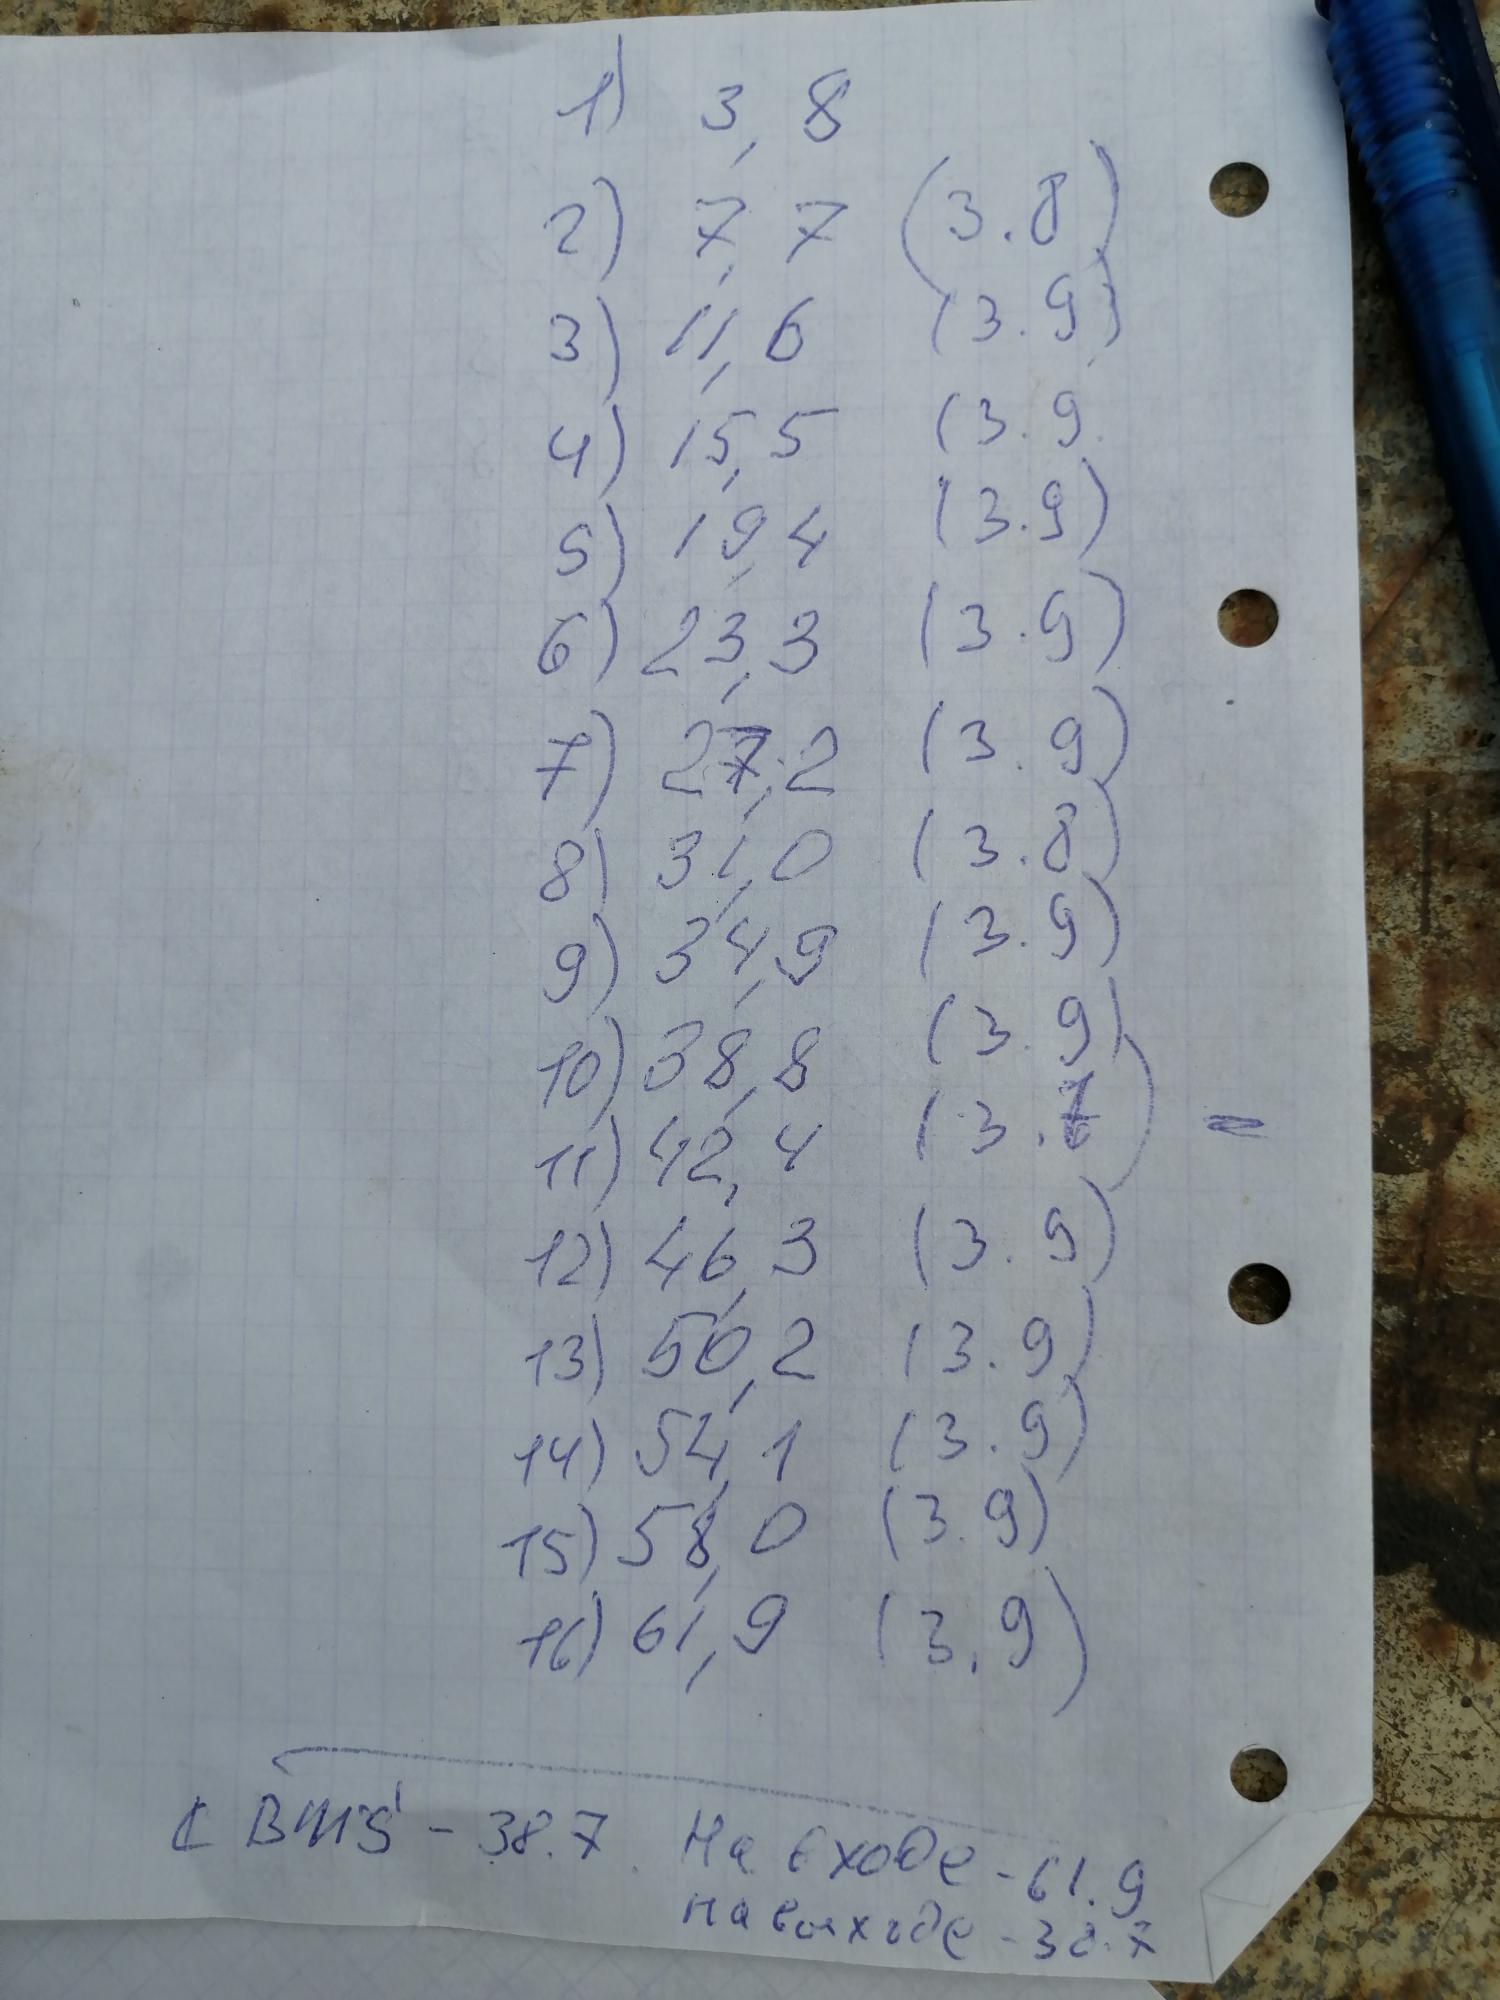 1) 3,8
2) 7,7 (3.8)
3) 11,6 (3.9)
4) 15,5 (3.9.
5) 19,4 (3.9)
6) 23,3 (3.9)
7) 27,2 (3.9)
8) 31,0 (3.8)
9) 34,9 (3.9)
10) 38,8 (3.9)
11) 42,4 (3.7) =
12) 46,3 (3.9)
13) 50,2 (3.9)
14) 54,1 (3.9)
15) 58,0 (3.9)
16) 61,9 (3,9)
С BMS - 38.7. На входе - 61.9
на выходе - 38.7